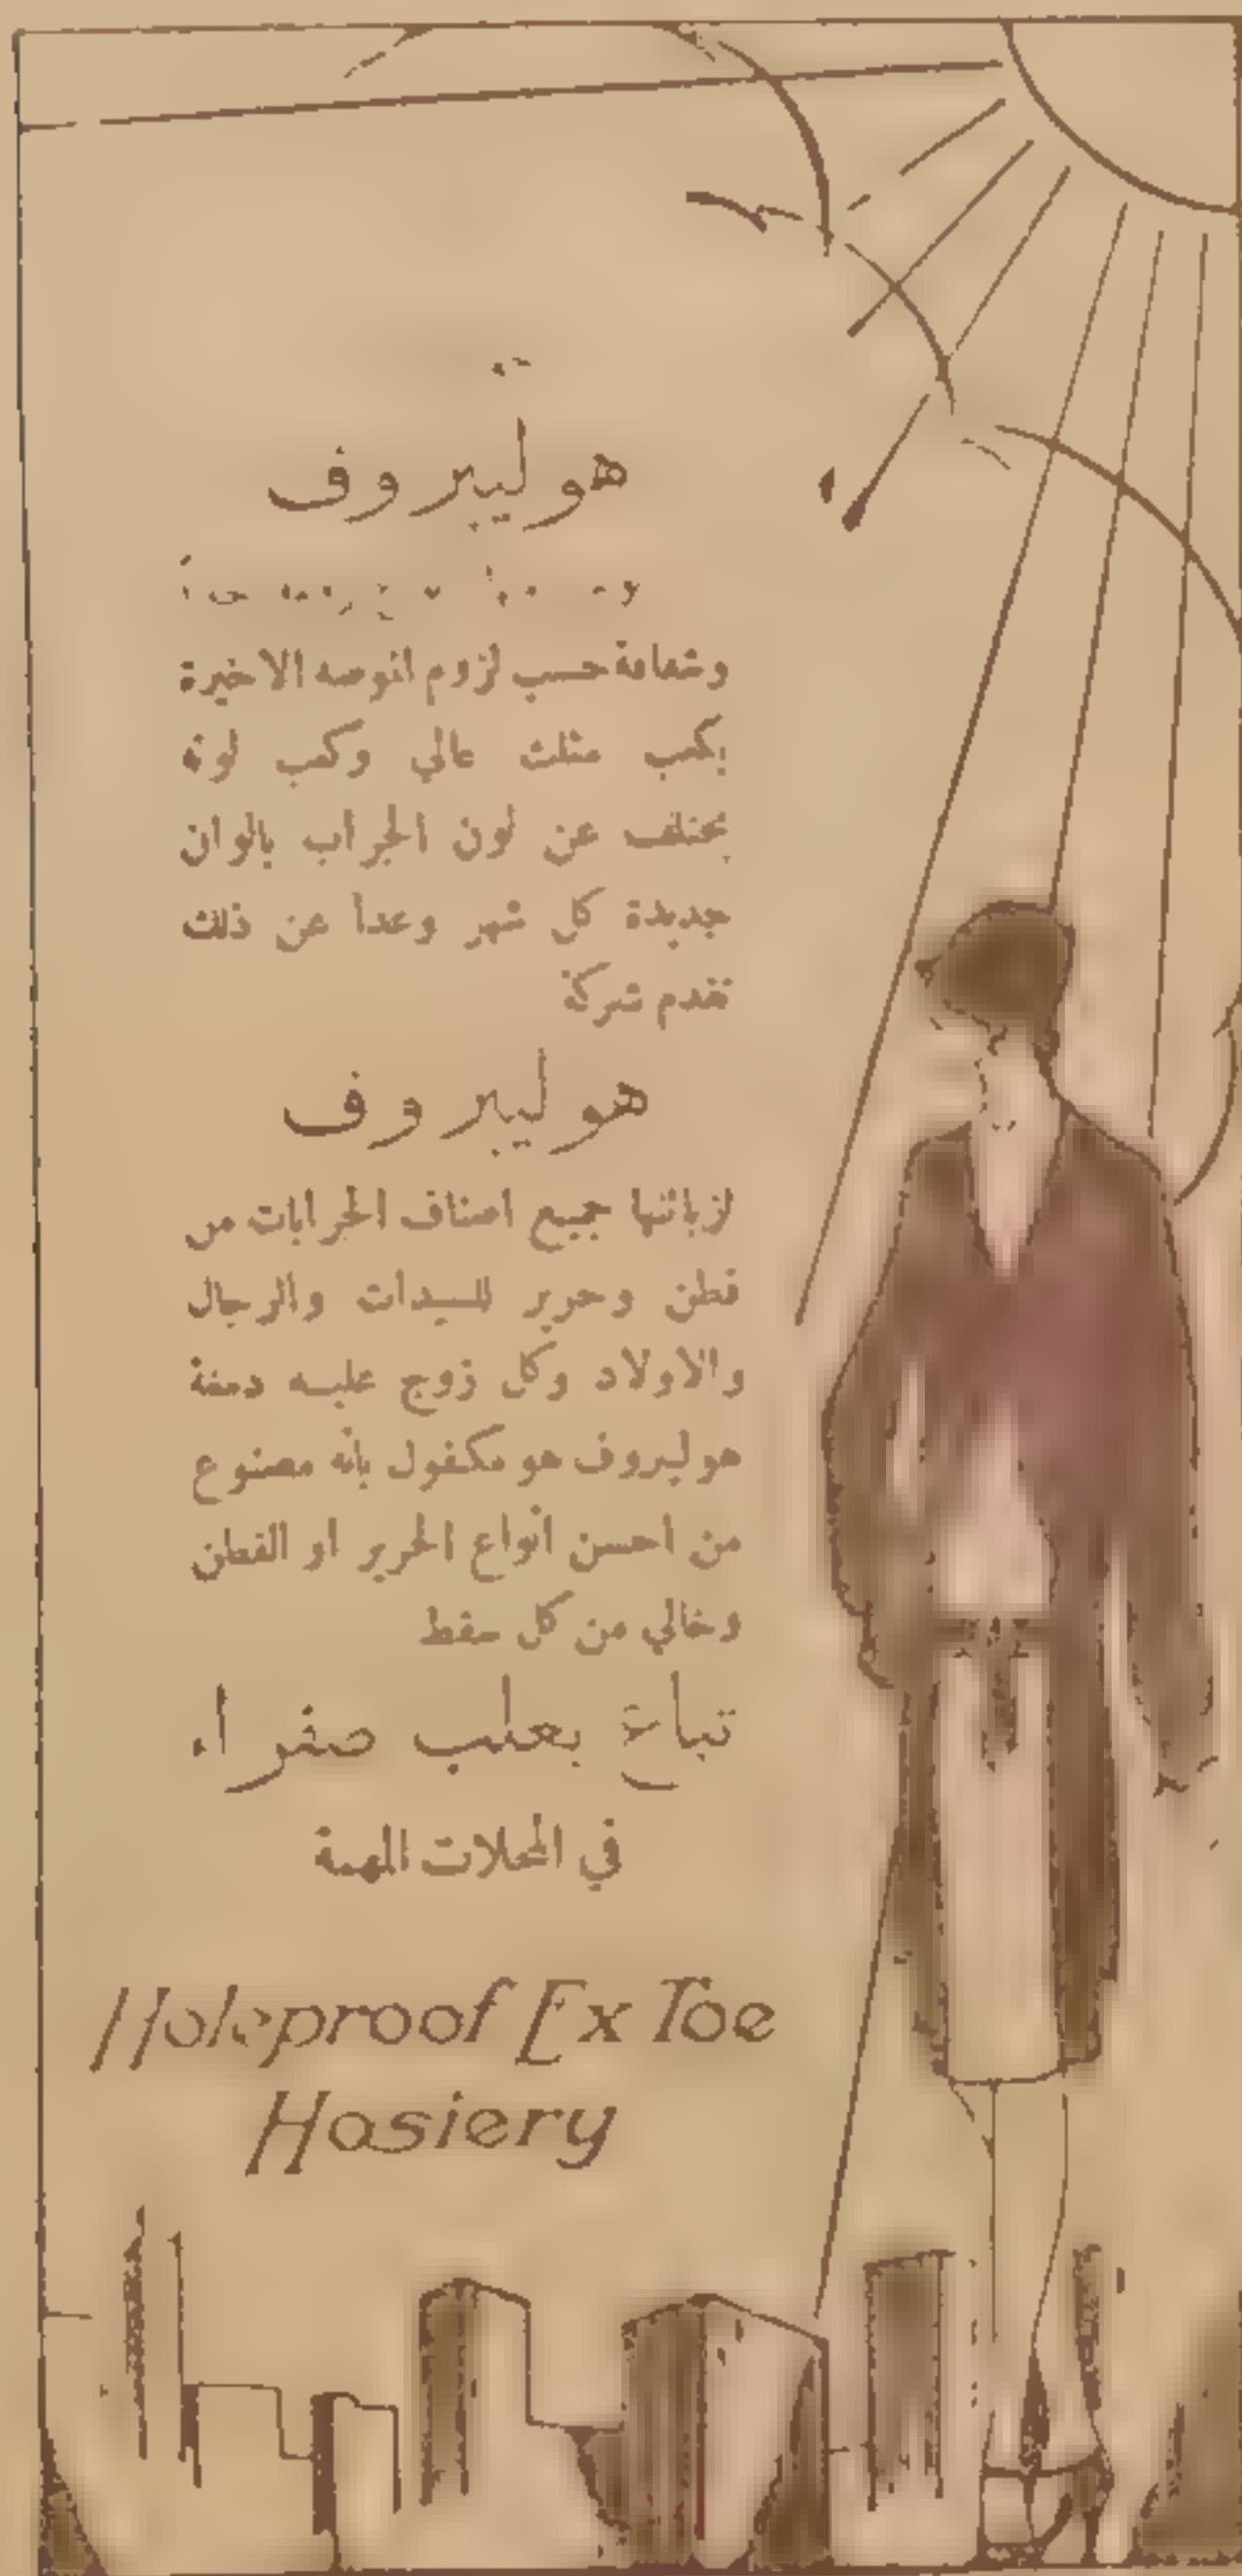 هوليبروف
وشفافة حسب لزوم الموضه الاخيرة
بكعب مثلث عالي وكعب لونه
يختلف عن لون الجراب بالوان
جديدة كل شهر وعدا عن ذلك
تقدم شركة
هوليبروف
لزبائنها جميع اصناف الجرابات من
قطن وحرير للسيدات والرجال
والاولاد وكل زوج عليه دمغة
هوليبروف هو مكفول بانه مصنوع
من احسن انواع الحرير او القطن
وخالي من كل سقط
تباع بعلب صفراء
في المحلات المهمة
Holeproof Ex Toe
Hosiery